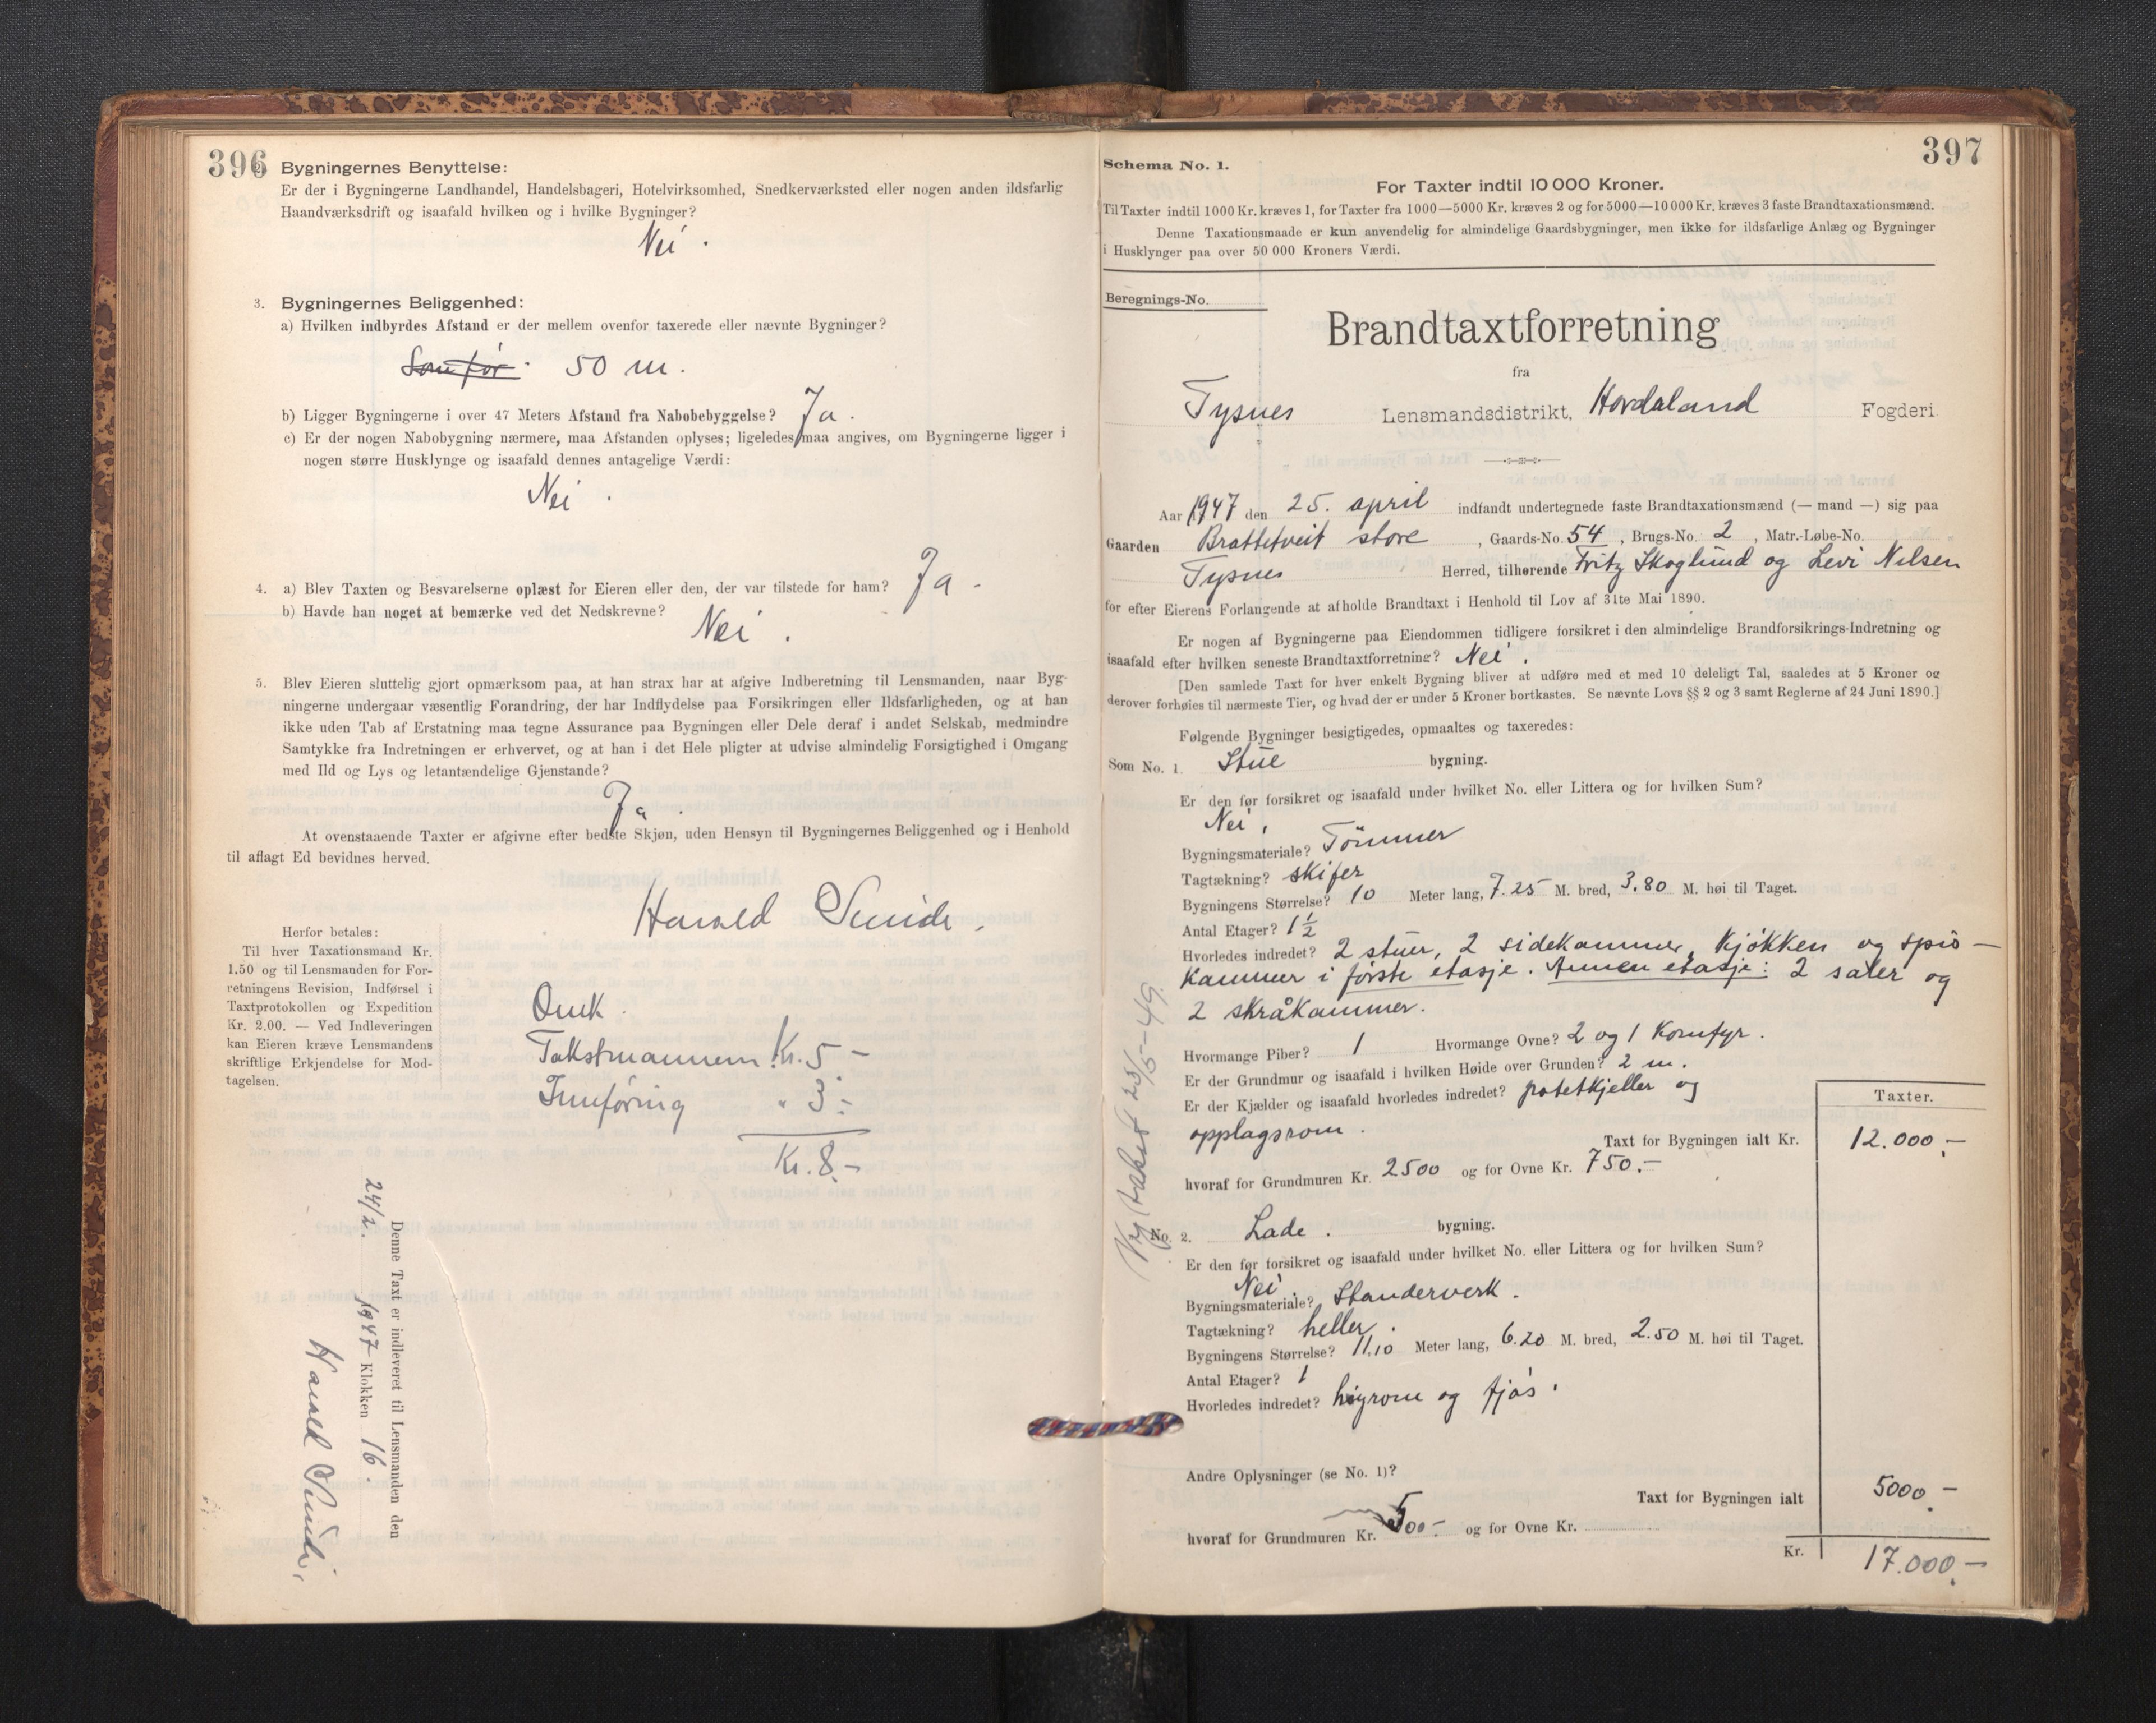 396
Bygningernes Benyttelse:
Er der i Bygningerne Landhandel, Handelsbageri, Hotelvirksomhed, Snedkerværksted eller nogen anden ildsfarlig
Haandværksdrift og isaafald hvilken og i hvilke Bygninger?
Nei.
3. Bygningernes Beliggenhed:
a) Hvilken indbyrdes Afstand er der mellem ovenfor taxerede eller nævnte Bygninger?
Som før. 50 m.
b) Ligger Bygningerne i over 47 Meters Afstand fra Nabobebyggelse? Ja.
c) Er der nogen Nabobygning nærmere, maa Afstanden oplyses; ligeledes maa angives, om Bygningerne ligger i
nogen større Husklynge og isaafald dennes antagelige Værdi:
Nei.
4. a) Blev Taxten og Besvarelserne oplæst for Eieren eller den, der var tilstede for ham? Ja -
b) Havde han noget at bemærke ved det Nedskrevne? Nei.
5. Blev Eieren sluttelig gjort opmærksom paa, at han strax har at afgive Indberetning til Lensmanden, naar Byg-
ningerne undergaar væsentlig Forandring, der har Indflydelse paa Forsikringen eller Ildsfarligheden, og at han
ikke uden Tab af Erstatning maa tegne Assurance paa Bygningen eller Dele deraf i andet Selskab, medmindre
Samtykke fra Indretningen er erhvervet, og at han i det Hele pligter at udvise almindelig Forsigtighed i Omgang
med Ild og Lys og letantændelige Gjenstande?
Ja.
At ovenstaaende Taxter er afgivne efter bedste Skjøn, uden Hensyn til Bygningernes Beliggenhed og i Henhold
til aflagt Ed bevidnes herved.
Harald Sunde.
Herfor betales:
Til hver Taxationsmand Kr.
1.50 og til Lensmanden for For-
retningens Revision, Indførsel i
Taxtprotokollen og Expedition
Kr. 2.00. — Ved Indleveringen
kan Eieren kræve Lensmandens
skriftlige Erkjendelse for Mod-
tagelsen.
Omk.
Takstmannen Kr. 5 -
Innføring " 3 -
Kr. 8.-
Denne Taxt er indleveret til Lensmanden den
24/2. 1947 Klokken 16.
Harald Sunde.
397
Schema No. 1.
For Taxter indtil 10 000 Kroner.
Til Taxter indtil 1000 Kr. kræves 1, for Taxter fra 1000—5000 Kr. kræves 2 og for 5000—10 000 Kr. kræves 3 faste Brandtaxationsmænd.
Denne Taxationsmaade er kun anvendelig for almindelige Gaardsbygninger, men ikke for ildsfarlige Anlæg og Bygninger
i Husklynger paa over 50 000 Kroners Værdi.
Beregnings-No.
Brandtaxtforretning
fra
Tysnes Lensmandsdistrikt, Hordaland Fogderi
Aar 1947 den 25. april indfandt undertegnede faste Brandtaxationsmænd (— mand —) sig paa
Gaarden Brattetveit store, Gaards-No. 54, Brugs-No. 2, Matr.-Løbe-No.
Tysnes Herred, tilhørende Fritz Skoglund og Levi Nilsen
for efter Eierens Forlangende at afholde Brandtaxt i Henhold til Lov af 31te Mai 1890.
Er nogen af Bygningerne paa Eiendommen tidligere forsikret i den almindelige Brandforsikrings-Indretning og
isaafald efter hvilken seneste Brandtaxtforretning? Nei.
[Den samlede Taxt for hver enkelt Bygning bliver at udføre med et med 10 deleligt Tal, saaledes at 5 Kroner og
derover forhøies til nærmeste Tier, og hvad der er under 5 Kroner bortkastes. Se nævnte Lovs §§ 2 og 3 samt Reglerne af 24 Juni 1890.]
Følgende Bygninger besigtigedes, opmaaltes og taxeredes:
Som No. 1. Stue bygning.
Er den før forsikret og isaafald under hvilket No. eller Littera og for hvilken Sum?
Nei.
Bygningsmateriale? Tömmer
Tagtækning? skifer
Bygningens Størrelse? 10 Meter lang, 7.25 M. bred, 3.80 M. høi til Taget.
Antal Etager? 1½
Hvorledes indredet? 2 stuer, 2 sidekammer, kjökken og spis-
kammer i förste etasje. Annen etasje: 2 saler og
2 skråkammer.
Hvormange Piber? 1 Hvormange Ovne? 2 og 1 komfyr.
Er der Grundmur og isaafald i hvilken Høide over Grunden? 2 m.
Er der Kjælder og isaafald hvorledes indredet? potetkjeller og
opplagsrom.
Taxter.
Taxt for Bygningen ialt Kr. 12.000.-
hvoraf for Grundmuren Kr. 2500 og for Ovne Kr. 750.-
Ny takst 23/5-49.
No. 2. Lade. bygning.
Er den før forsikret og isaafald under hvilket No. eller Littera og for hvilken Sum?
Nei.
Bygningsmateriale? Standerverk.
Tagtækning? heller.
Bygningens Størrelse? 11,10 Meter lang, 6.20 M. bred, 2.50 M. høi til Taget.
Antal Etager? 1
Hvorledes indredet? høyrom og fjös.
Andre Oplysninger (se No. 1)?
Taxt for Bygningen ialt 5000.-
hvoraf for Grundmuren Kr. 500.- og for Ovne Kr.
Kr. 17.000.-